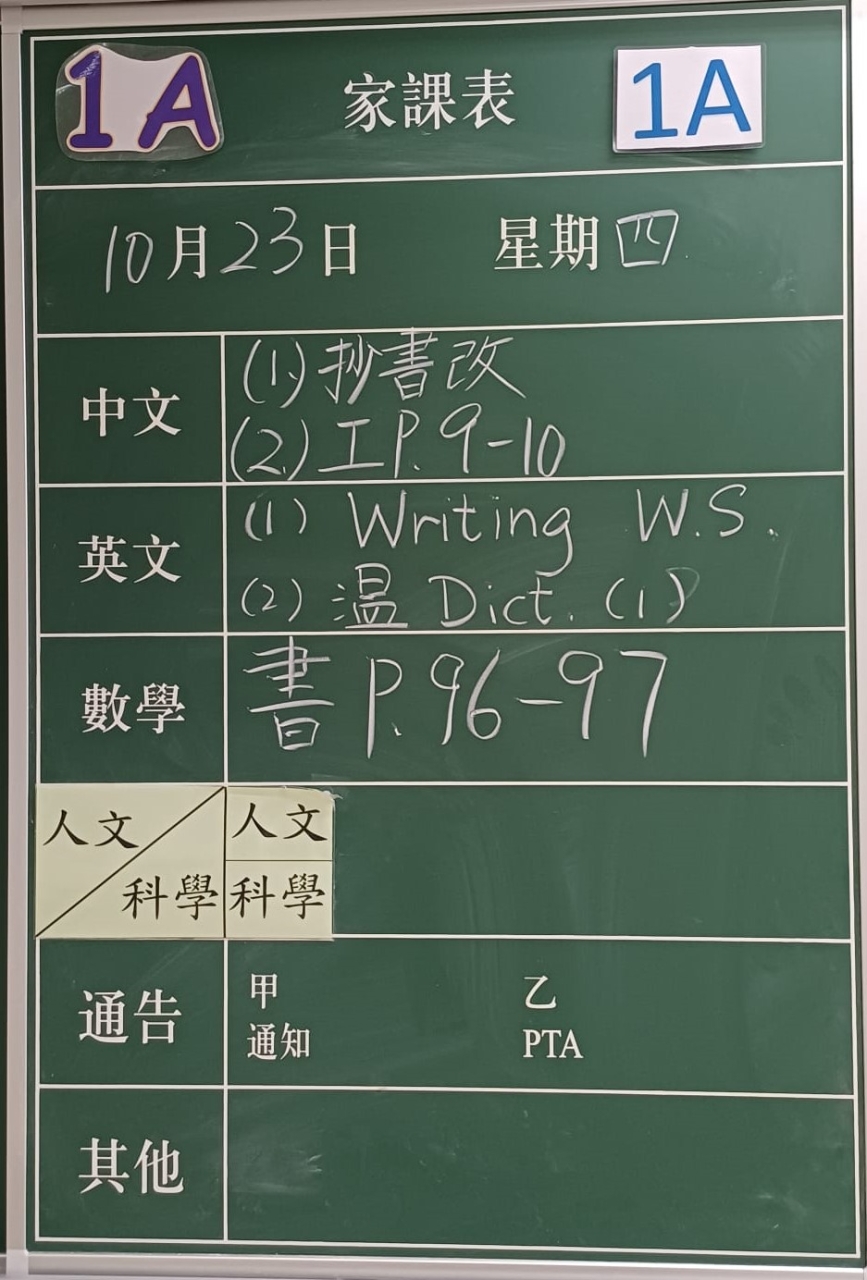 1A 家課表 1A
10月23日 星期四
中文 (1) 抄書改
(2) 工 P. 9-10
英文 (1) Writing W.S.
(2) 温 Dict. (1)
數學 書 P. 96-97
人文 人文
科學 科學
通告 甲 乙
通知 PTA
其他